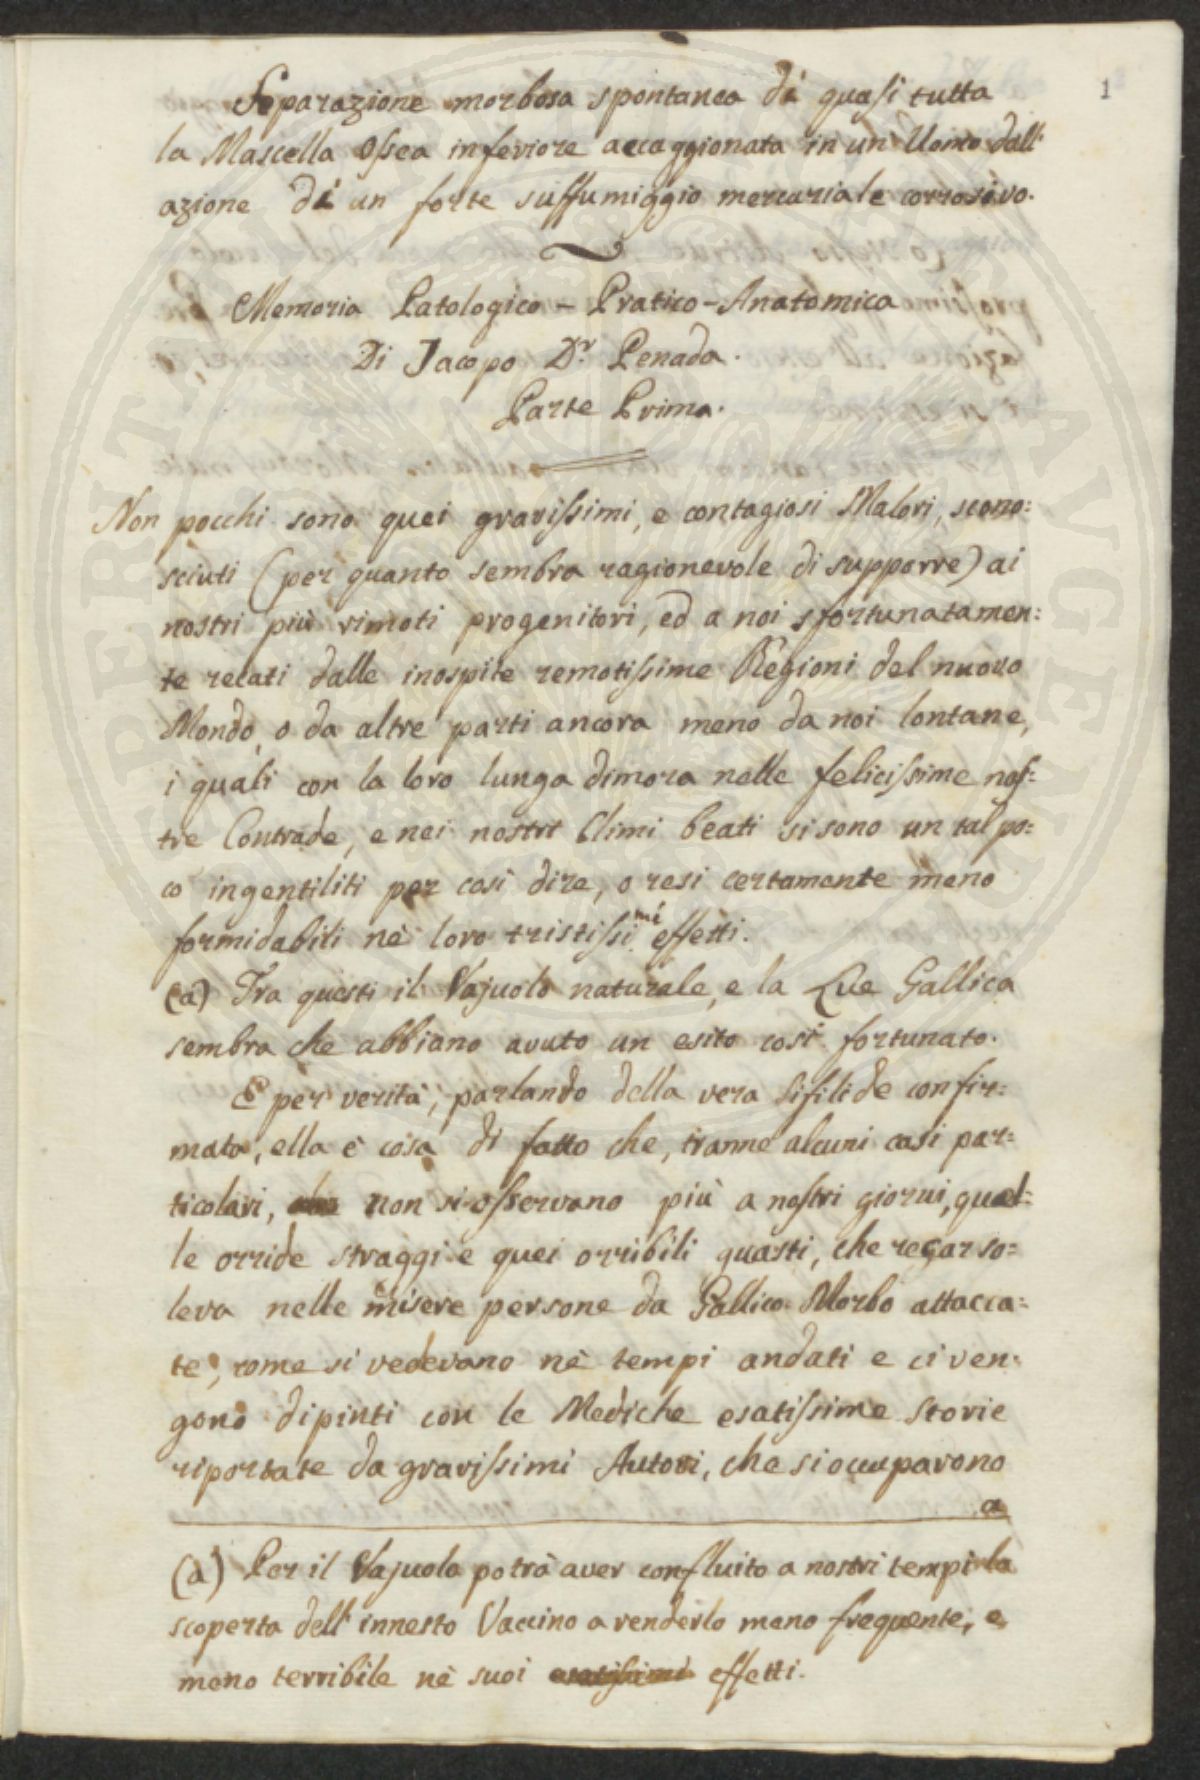 1
Separazione morbosa spontanea di quasi tutta
la Mascella Ossea inferiore accaggionata in un Uomo dall'
azione di un forte suffumiggio mercuriale corrosivo.
Memoria Patologico - Pratico - Anatomica
Di Jacopo Dr. Penada.
Parte Prima.
Non pocchi sono quei gravissimi, e contagiosi Malori, scono=
sciuti (per quanto sembra ragionevole di supporre) ai
nostri più rimoti progenitori, ed a noi sfortunatamen=
te recati dalle inospite remotissime Regioni del nuovo
Mondo, o da altre parti ancora meno da noi lontane,
i quali con la loro lunga dimora nelle felicissime nos=
tre Contrade, e nei nostri Climi beati si sono un tal po=
co ingentiliti per così dire, o resi certamente meno
formidabili nè loro tristissimi effetti.
(a) Tra questi il Vajuolo naturale, e la Lue Gallica
sembra che abbiano avuto un esito così fortunato.
E per verità, parlando della vera Sifilide confir=
mata, ella è cosa di fatto che, tranne alcuni casi par=
ticolari, non si osservano più a nostri giorni, quel=
le orride straggi e quei orribili guasti, che recar so=
leva nelle misere persone da Gallico Morbo attacca=
te, come si vedevano nè tempi andati e ci ven=
gono dipinti con le Mediche esatissime storie
riportate da gravissimi Autori, che si occuparono
a
(a) Per il Vajuolo potrà aver confluito a nostri tempi la
scoperta dell'innesto Vaccino a renderlo meno frequente, e
meno terribile nè suoi effetti.